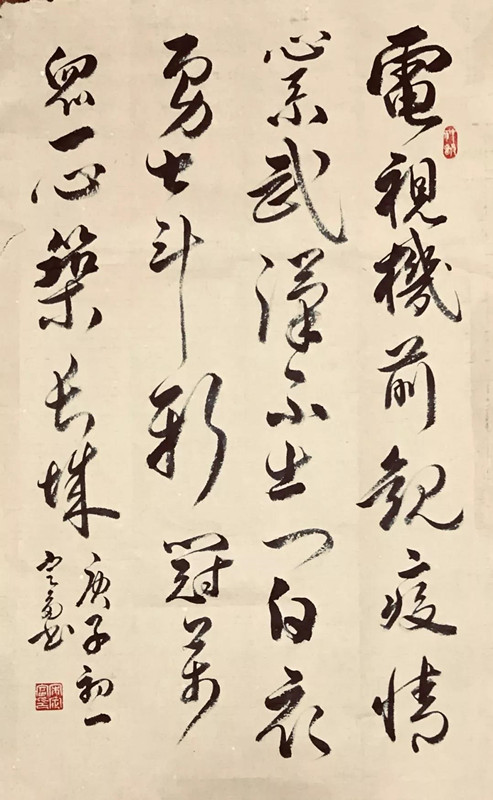 電視機前觀疫情
心系武漢不出门白衣
勇士斗新冠萬
眾一心築長城
庚子初一
书